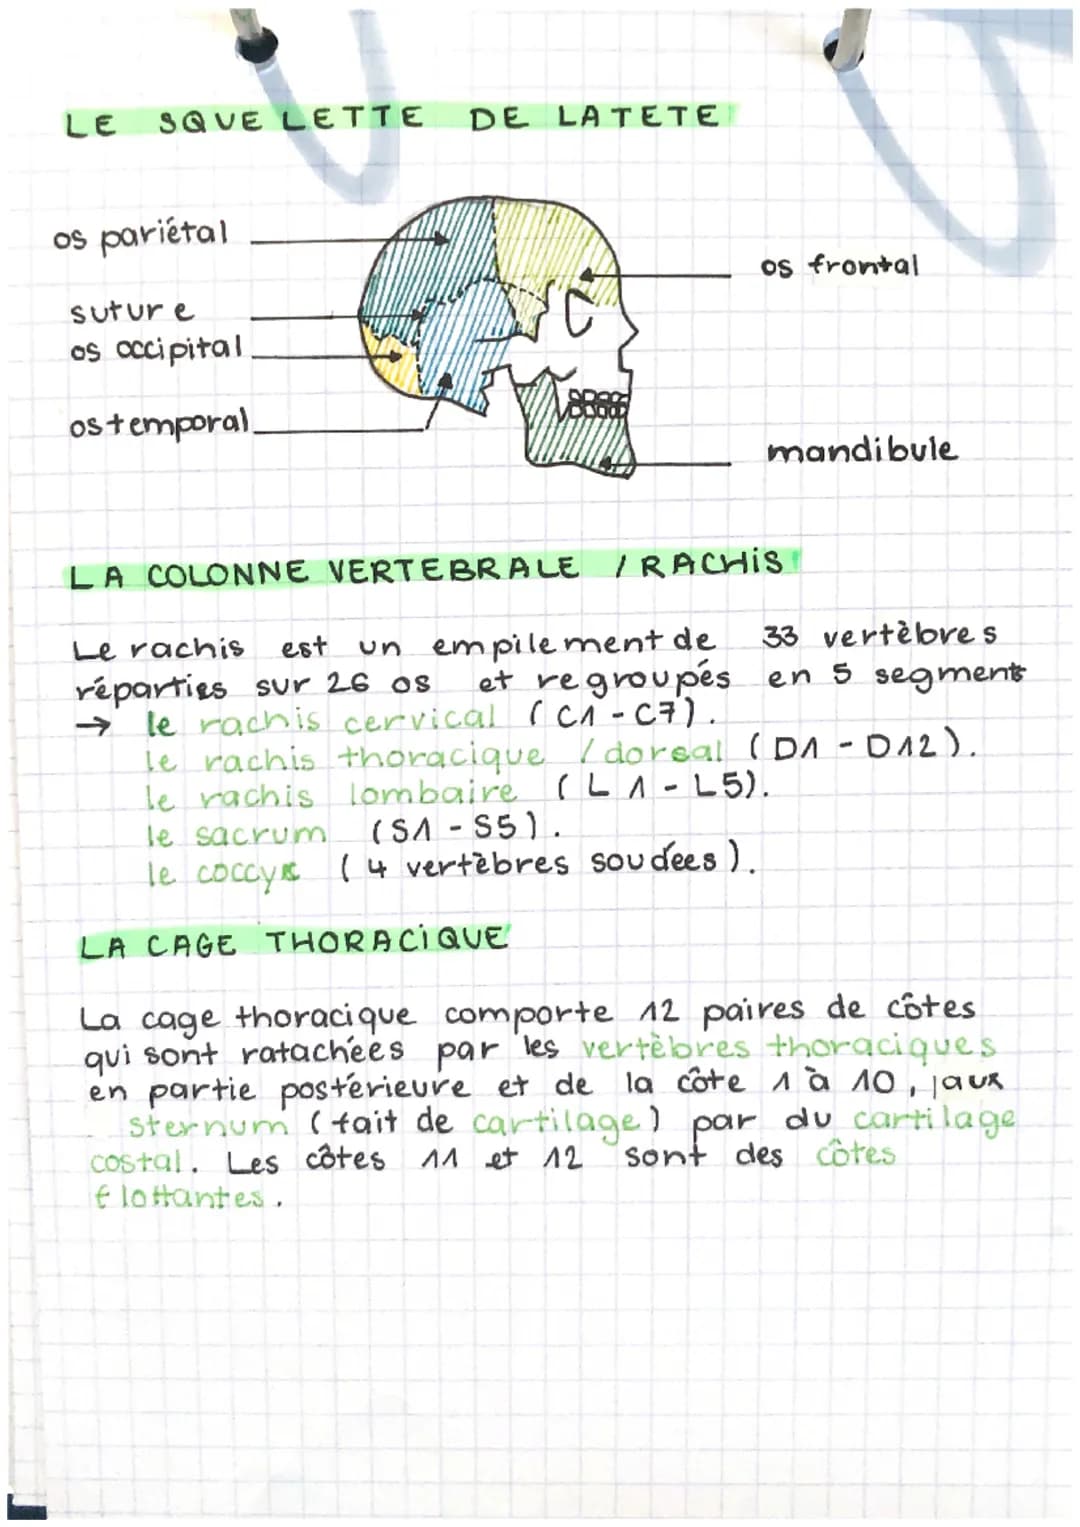 LE SQUELETTE DE LA TETE
os pariétal
os frontal
suture
os occipital
os temporal
mandibule
LA COLONNE VERTEBRALE / RACHIS
Le rachis est un empilement de 33 vertèbres
réparties sur 26 os et regroupés en 5 segments
→ le rachis cervical (C1 - C7).
le rachis thoracique / dorsal (D1 - D12).
le rachis lombaire (L1 - L5).
le sacrum (S1 - S5).
le coccyx (4 vertèbres soudées).
LA CAGE THORACIQUE
La cage thoracique comporte 12 paires de côtes
qui sont ratachées par les vertèbres thoraciques
en partie postérieure et de la côte 1 à 10, aux
sternum (fait de cartilage) par du cartilage
costal. Les côtes 11 et 12 sont des côtes
flottantes.